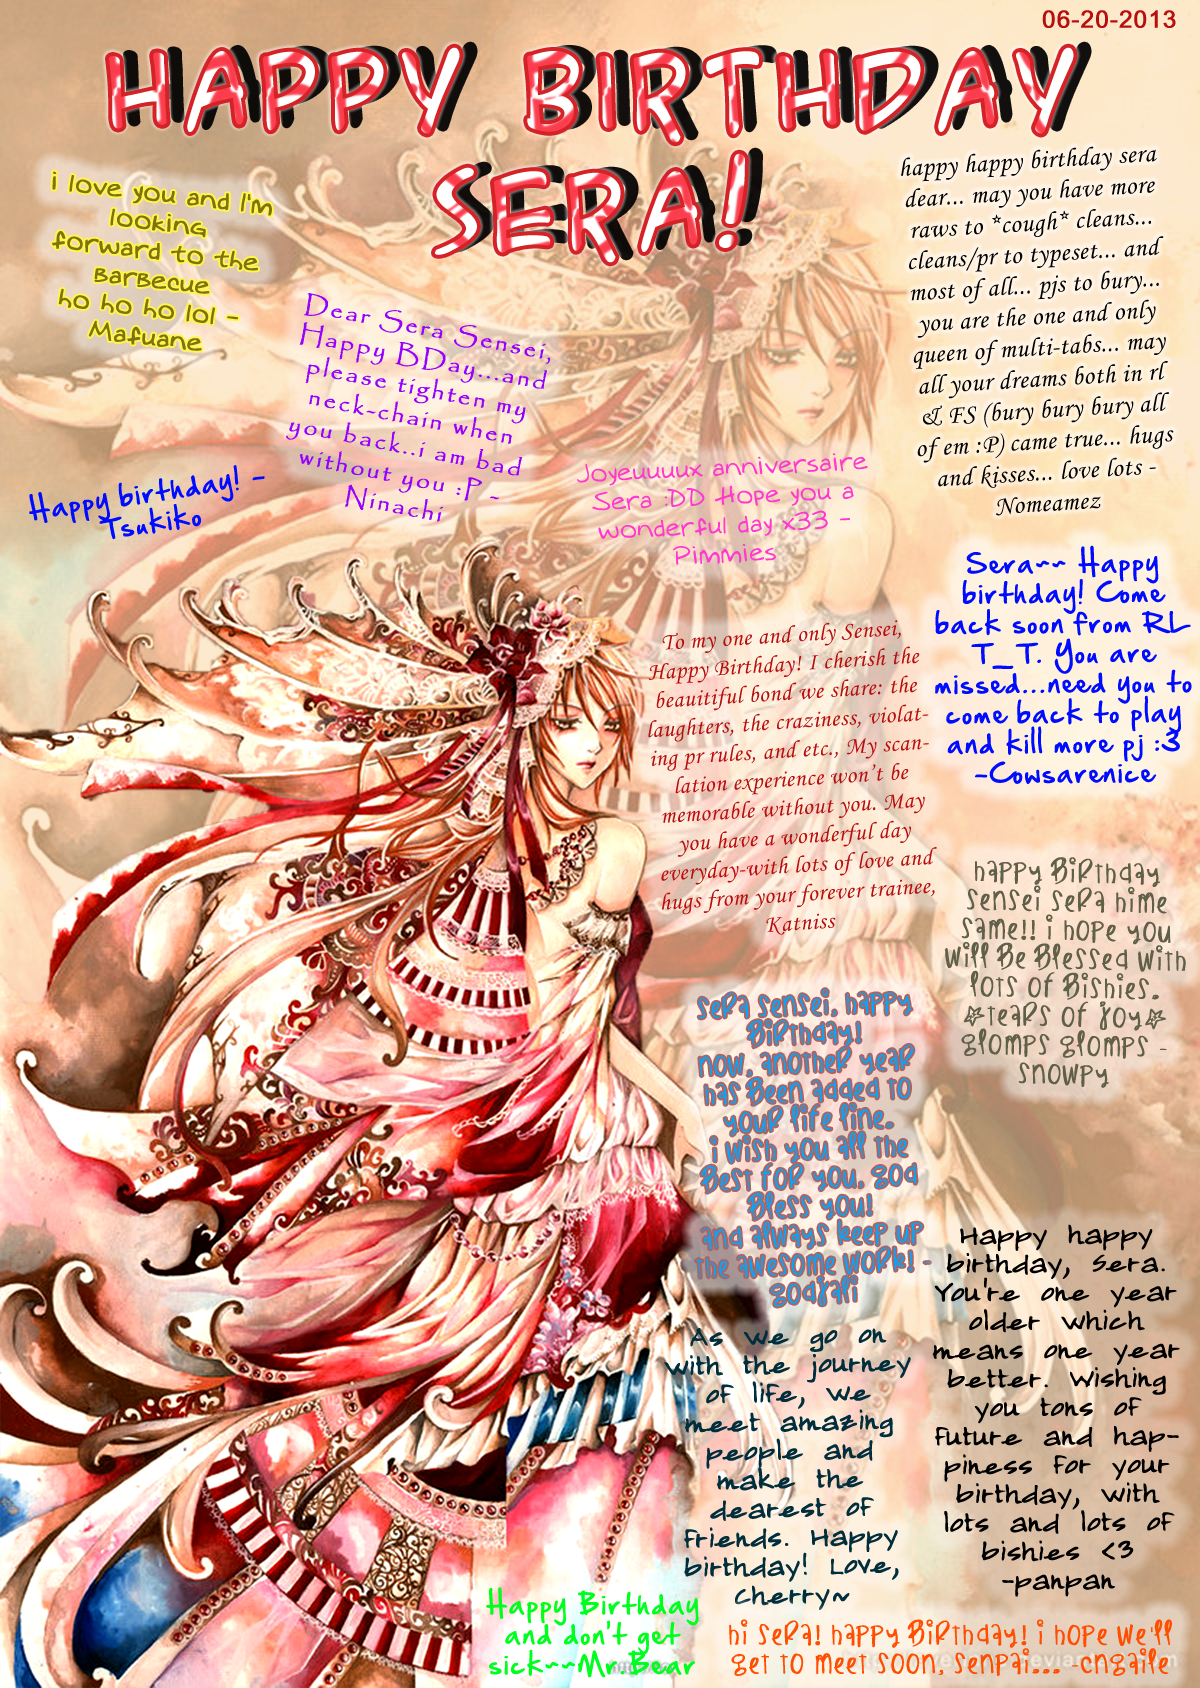 06-20-2013
HAPPY BIRTHDAY
SERA!
i love you and I'm
looking
forward to the
Barbecue
ho ho ho lol -
Mafuane
Dear Sera Sensei,
Happy BDay...and
please tighten my
neck-chain when
you back..i am bad
without you :P -
Ninachi
happy happy birthday sera
dear... may you have more
raws to *cough* cleans...
cleans/pr to typeset... and
most of all... pjs to bury...
you are the one and only
queen of multi-tabs... may
all your dreams both in rl
& FS (bury bury bury all
of em :P) came true... hugs
and kisses... love lots -
Nomeamez
Happy birthday! -
Tsukiko
Joyeuuuux anniversaire
Sera :DD Hope you a
wonderful day x33 -
Pimmies
Sera~~ Happy
birthday! Come
back soon from RL
T_T. You are
missed...need you to
come back to play
and kill more pj :3
-Cowsarenice
To my one and only Sensei,
Happy Birthday! I cherish the
beauitiful bond we share: the
laughters, the craziness, violat-
ing pr rules, and etc., My scan-
lation experience won't be
memorable without you. May
you have a wonderful day
everyday-with lots of love and
hugs from your forever trainee,
Katniss
Happy Birthday
sensei sera hime
same!! i hope you
will be blessed with
lots of bishies.
*tears of joy*
glomps glomps -
snowpy
sera sensei, happy
Birthday!
now, another year
has been added to
your life line.
i wish you all the
best for you. god
bless you!
and always keep up
the awesome work! -
godjali
Happy happy
birthday, Sera.
You're one year
older which
means one year
better. Wishing
you tons of
future and hap-
piness for your
birthday, with
lots and lots of
bishies <3
-panpan
As we go on
with the journey
of life, we
meet amazing
people and
make the
dearest of
friends. Happy
birthday! Love,
Cherry~
Happy Birthday
and don't get
sick~~Mr.Bear
hi sera! happy birthday! i hope we'll
get to meet soon, senpai... -cngaile